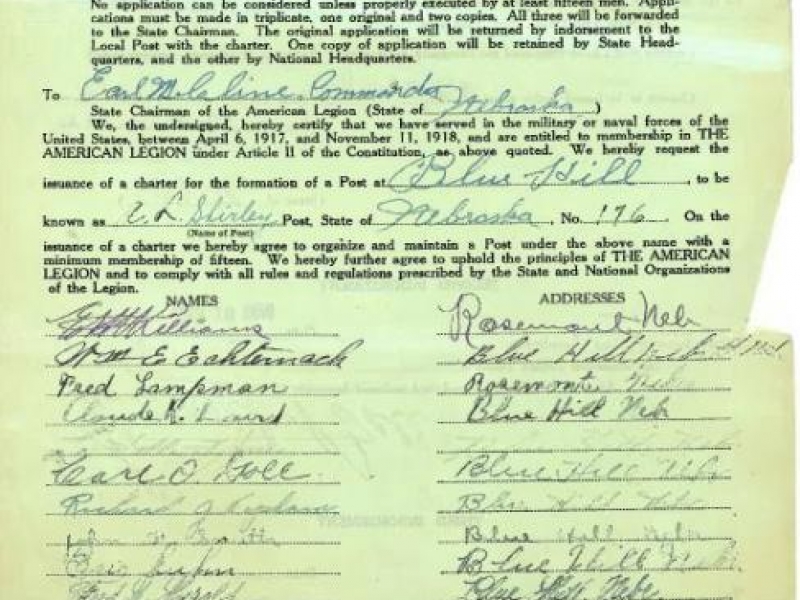 No application can be considered unless properly executed by at least fifteen men. Appli-
cations must be made in triplicate, one original and two copies. All three will be forwarded
to the State Chairman. The original application will be returned by indorsement to the
Local Post with the charter. One copy of application will be retained by State Head-
quarters, and the other by National Headquarters.
To Earl M. Cline, Commander
State Chairman of the American Legion (State of Nebraska)
We, the undersigned, hereby certify that we have served in the military or naval forces of the
United States, between April 6, 1917, and November 11, 1918, and are entitled to membership in THE
AMERICAN LEGION under Article II of the Constitution, as above quoted. We hereby request the
issuance of a charter for the formation of a Post at Blue Hill, to be
known as E L Shirley Post, State of Nebraska, No. 176. On the
(Name of Post)
issuance of a charter we hereby agree to organize and maintain a Post under the above name with a
minimum membership of fifteen. We hereby further agree to uphold the principles of THE AMERICAN
LEGION and to comply with all rules and regulations prescribed by the State and National Organizations
of the Legion.
NAMES ADDRESSES
Williams Rosemont Neb
Wm E Echternach Blue Hill Neb
Fred Lampman Rosemont Nebr
Claude Blue Hill Neb
Carl O. Goll Blue Hill Nebr
Richard Blue Hill Nebr
John Blue Hill Nebr
Blue Hill Nebr.
Blue Hill Nebr